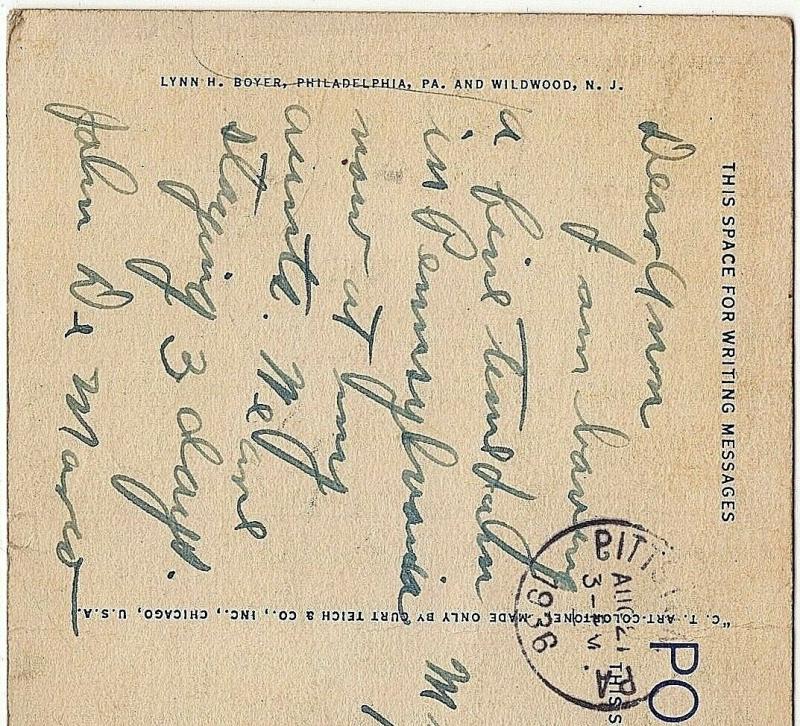 LYNN H. BOYER, PHILADELPHIA, PA. AND WILDWOOD, N. J.
THIS SPACE FOR WRITING MESSAGES
Dear
I am having
a fine time
in Pennsylvania
now at my
aunts. We are
staying 3 days.
John De Marco
"C. T. ART-COLORTONE" MADE ONLY BY CURT TEICH & CO., INC., CHICAGO, U.S.A.
PITTS
AUG 21
3-
1936
PA
PO
THIS S
M